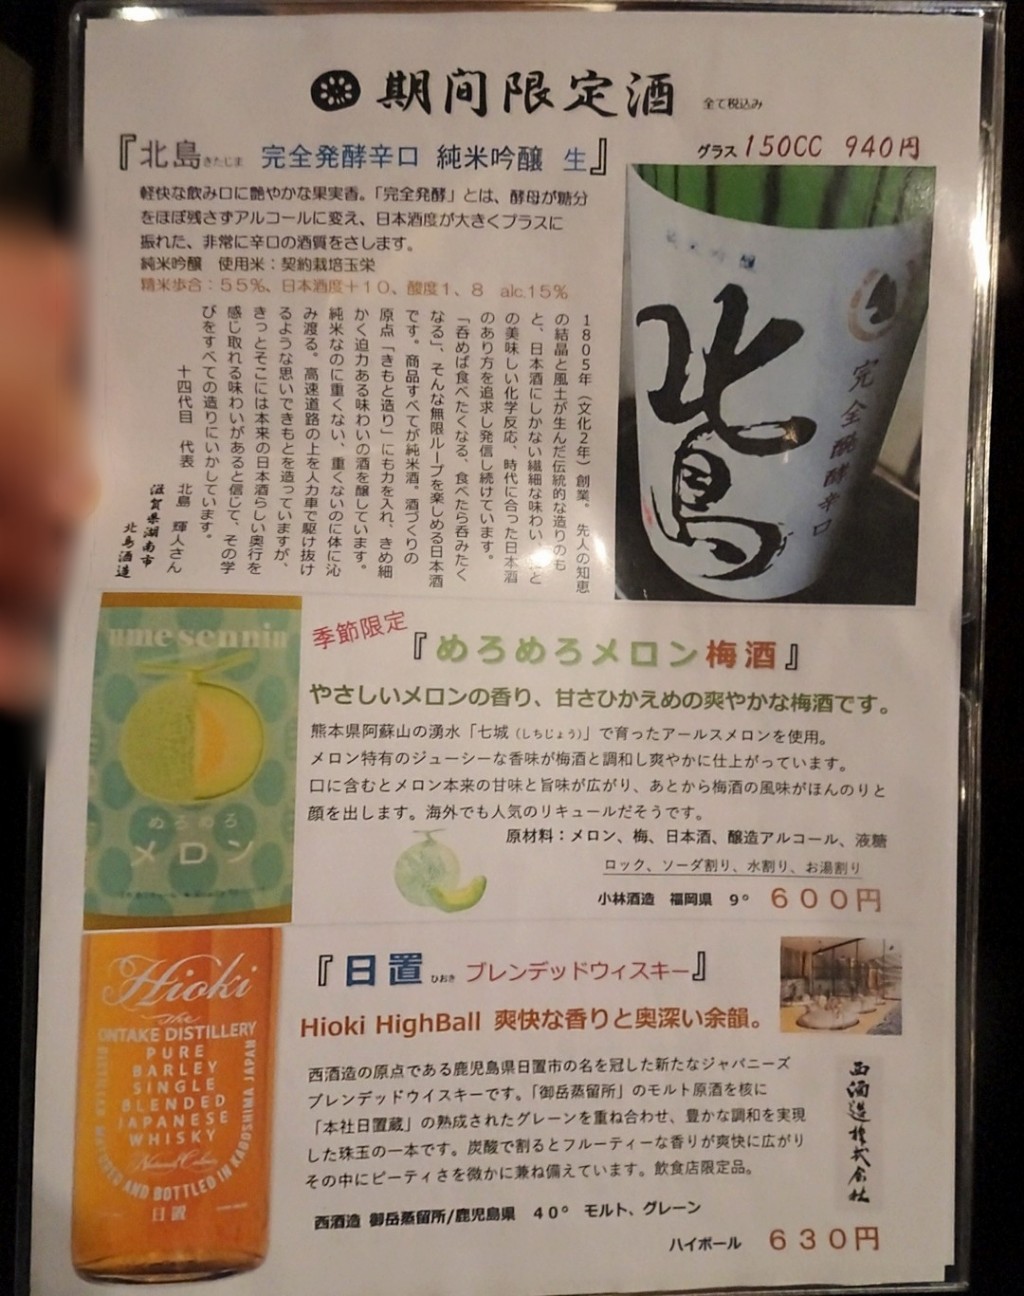 期间限定酒 全て税込み
『北島きたじま 完全発酵辛口 純米吟醸 生』
グラス 150CC 940円
軽快な飲み口に艶やかな果実香。「完全発酵」とは、酵母が糖分
をほぼ残さずアルコールに変え、日本酒度が大きくプラスに
振れた、非常に辛口の酒質をさします。
純米吟醸 使用米：契約栽培玉栄
精米歩合：55%、日本酒度＋10、酸度1、8 alc.15%
1805年（文化2年）創業。先人の知恵
の結晶と風土が生んだ伝統的な造りのも
と、日本酒にしかない繊細な味わい、と
の美味しい化学反応、時代に合った日本酒
のあり方を追求し発信し続けています。
「呑めば食べたくなる、食べたら呑みたく
なる」、そんな無限ループを楽しめる日本酒
です。商品すべてが純米酒。酒づくりの
原点「きもと造り」にも力を入れ、きめ細
かく迫力ある味わいの酒を醸しています。
純米なのに重くない、重くないのに体に沁
み渡る。高速道路の上を人力車で駆け抜け
るような思いできもとを造っていますが、
きっとそこには本来の日本酒らしい奥行を
感じ取れる味わいがあると信じて、その学
びをすべての造りにいかしています。
十四代目 代表 北島 輝人さん
滋賀県湖南市
北島酒造
純米吟醸
北島
完全醗酵辛口
ume sennin
めろめろ
メロン
季節限定
『めろめろメロン梅酒』
やさしいメロンの香り、甘さひかえめの爽やかな梅酒です。
熊本県阿蘇山の湧水「七城（しちじょう）」で育ったアールスメロンを使用。
メロン特有のジューシーな香味が梅酒と調和し爽やかに仕上がっています。
口に含むとメロン本来の甘味と旨味が広がり、あとから梅酒の風味がほんのりと
顔を出します。海外でも人気のリキュールだそうです。
原材料：メロン、梅、日本酒、醸造アルコール、液糖
ロック、ソーダ割り、水割り、お湯割り
小林酒造 福岡県 9° 600円
Hioki
The
ONTAKE DISTILLERY
PURE
BARLEY
SINGLE
BLENDED
JAPANESE
WHISKY
Natural Color
AND BOTTLED IN KAGOSHIMA JAPAN
日置
『日置 ひおき ブレンデッドウィスキー』
Hioki HighBall 爽快な香りと奥深い余韻。
西酒造の原点である鹿児島県日置市の名を冠した新たなジャパニーズ
ブレンデッドウイスキーです。「御岳蒸留所」のモルト原酒を核に
「本社日置蔵」の熟成されたグレーンを重ね合わせ、豊かな調和を実現
した珠玉の一本です。炭酸で割るとフルーティーな香りが爽快に広がり
その中にピーティさを微かに兼ね備えています。飲食店限定品。
西酒造株式会社
西酒造 御岳蒸留所/鹿児島県 40° モルト、グレーン
ハイボール 630円